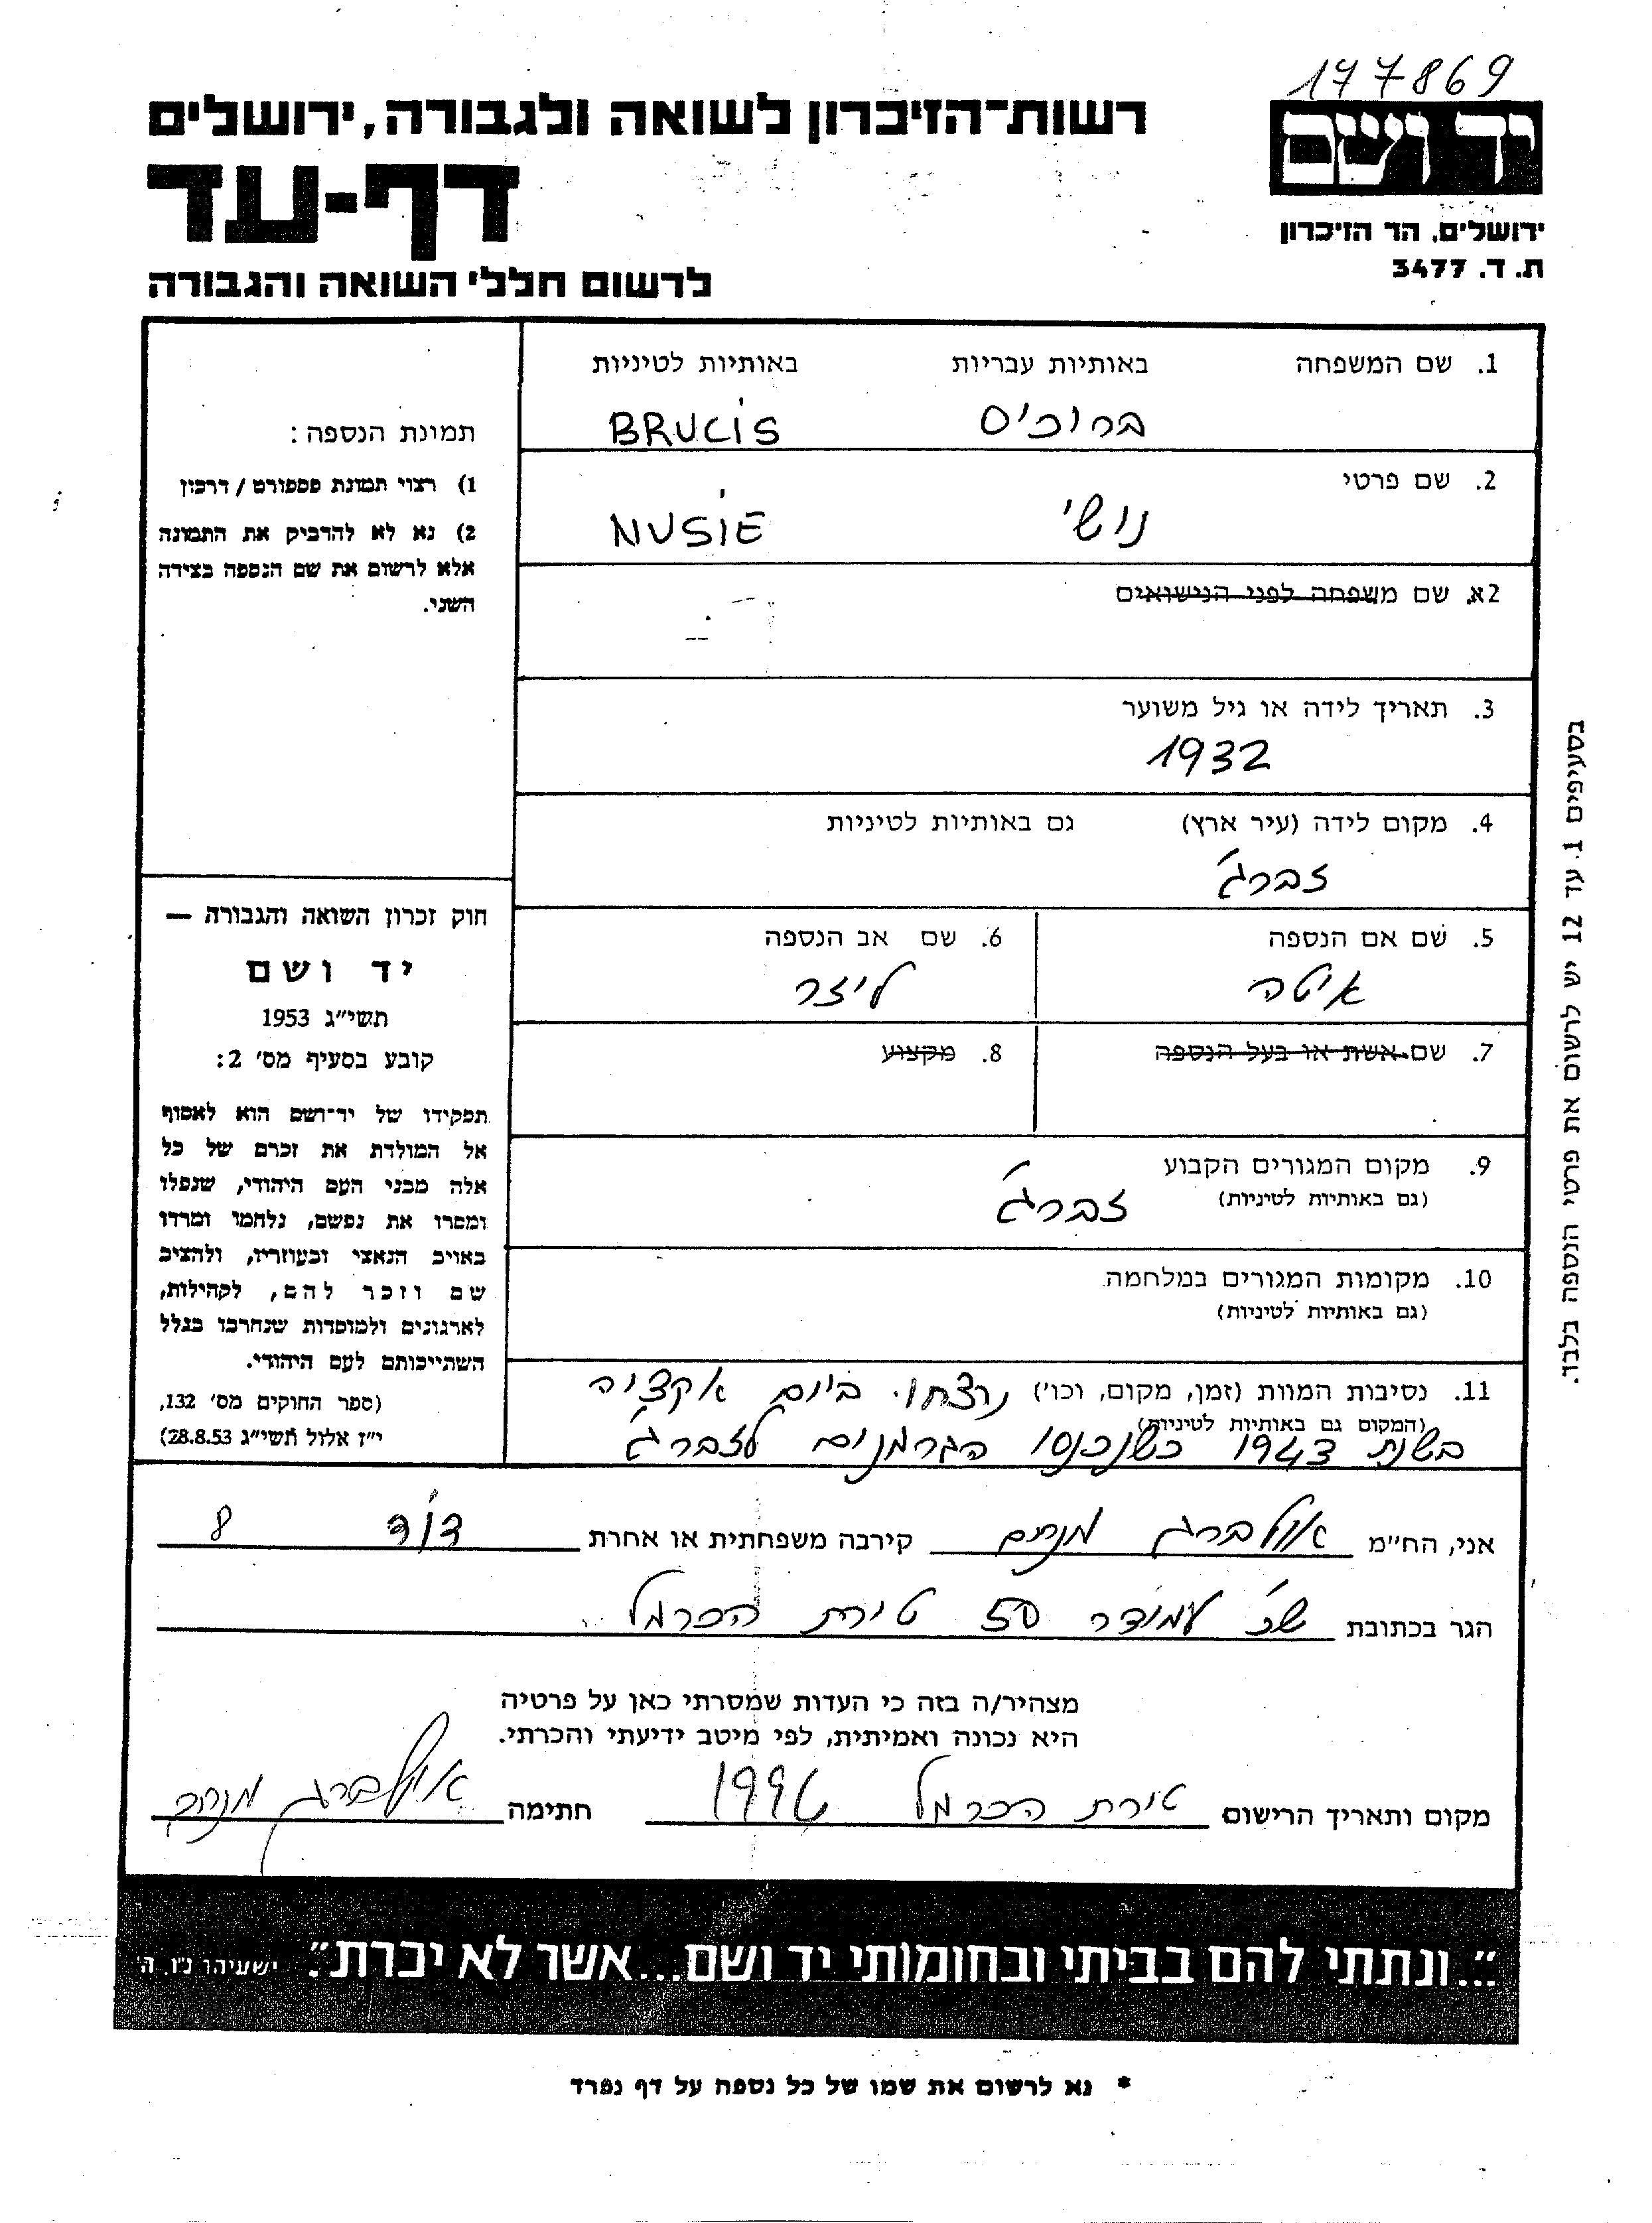 177869
יד ושם
רשות-הזיכרון לשואה ולגבורה, ירושלים
דף-עד
לרשום חללי השואה והגבורה
ירושלים, הר הזיכרון
ת. ד. 3477
1. שם המשפחה באותיות עבריות באותיות לטיניות
ברוכיס BRUCiS
2. שם פרטי
נושי NUSiE
2א. שם משפחה לפני הנישואים
3. תאריך לידה או גיל משוער
1932
4. מקום לידה (עיר ארץ) גם באותיות לטיניות
זברג'
5. שם אם הנספה 6. שם אב הנספה
איטה ליזר
7. שם אשת או בעל הנספה 8. מקצוע
9. מקום המגורים הקבוע
(גם באותיות לטיניות)
זברג'
10. מקומות המגורים במלחמה
(גם באותיות לטיניות)
11. נסיבות המוות (זמן, מקום, וכו') נרצחו ביום אקציה
(המקום גם באותיות לטיניות)
בשנת 1943 כשנכנסו הגרמנים לזברג'
תמונת הנספה:
1) רצוי תמונת פספורט / דרכון
2) נא לא להדביק את התמונה
אלא לרשום את שם הנספה בצידה
השני.
חוק זכרון השואה והגבורה —
יד ושם
תשי"ג 1953
קובע בסעיף מס' 2:
תפקידו של יד-ושם הוא לאסוף
אל המולדת את זכרם של כל
אלה מבני העם היהודי, שנפלו
ומסרו את נפשם, נלחמו ומרדו
באויב הנאצי ובעוזריו, ולהציב
שם וזכר להם, לקהילות,
לארגונים ולמוסדות שנחרבו בגלל
השתייכותם לעם היהודי.
(ספר החוקים מס' 132,
י"ז אלול תשי"ג 28.8.53)
בסעיפים 1 עד 12 יש לרשום את פרטי הנספה בלבד.
אני, הח"מ אולברג מנחם קירבה משפחתית או אחרת דוד 8
הגר בכתובת שכ' עמידר 50 טירת הכרמל
מצהיר/ה בזה כי העדות שמסרתי כאן על פרטיה
היא נכונה ואמיתית, לפי מיטב ידיעתי והכרתי.
מקום ותאריך הרישום טירת הכרמל חתימה אולברג מנחם
"...ונתתי להם בביתי ובחומותי יד ושם...אשר לא יכרת". ישעיהו נ"ו. ה'
* נא לרשום את שמו של כל נספה על דף נפרד